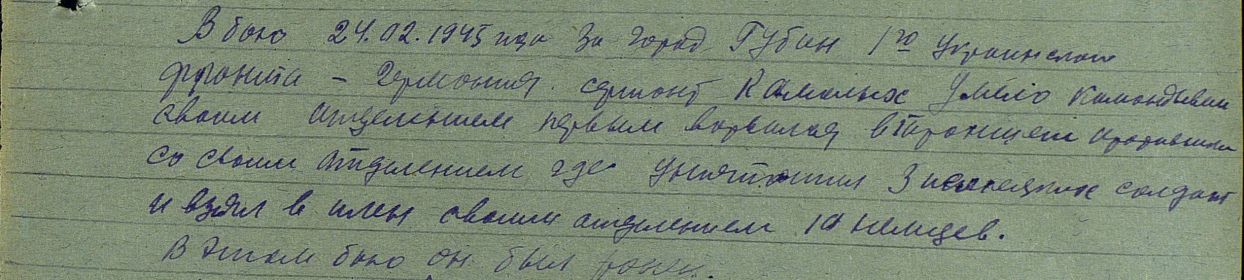 В бою 24.02.1945 года за город Губин 1го Украинского
фронта – Германия. сержант Камельих умело командывая
своим отделением первым ворвался в траншеи противника
со своим отделением где уничтожил 3 немецких солдат
и взял в плен своим отделением 10 немцев.
В этом бою он был ранен.